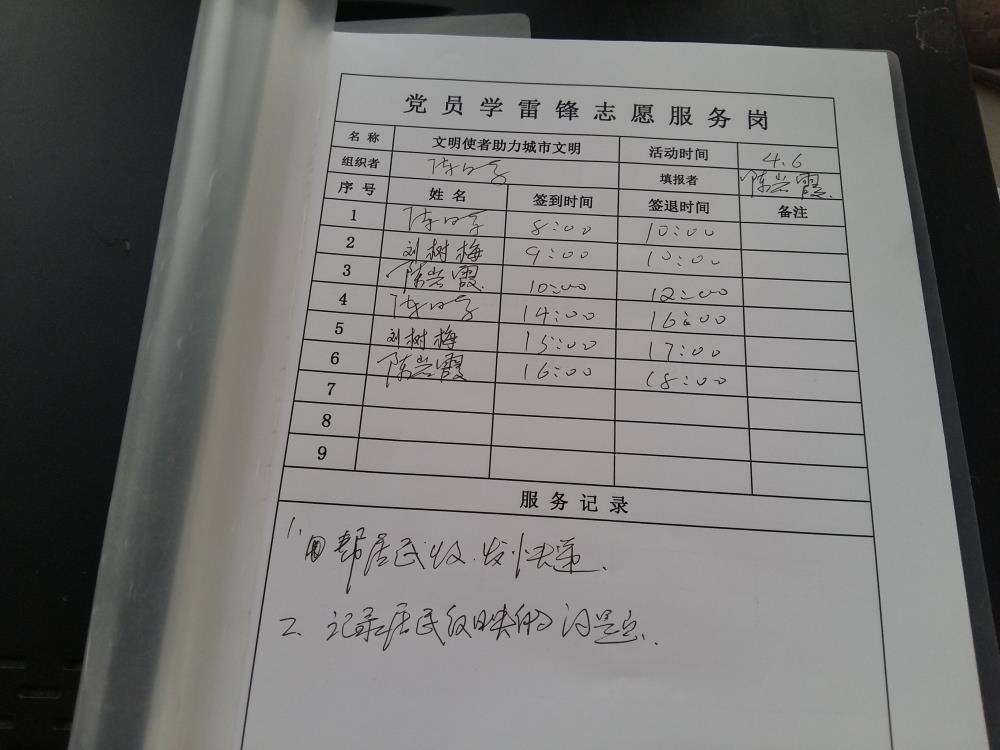 党员学雷锋志愿服务岗
名称 文明使者助力城市文明 活动时间 4.6
组织者 填报者 陈岩霞
序号 姓名 签到时间 签退时间 备注
1 8:00 10:00
2 刘树梅 9:00 10:00
3 陈岩霞 10:00 12:00
4 14:00 16:00
5 刘树梅 15:00 17:00
6 陈岩霞 16:00 18:00
7
8
9
服务记录
1、帮居民收.发快递.
2、记录居民反映的问题.